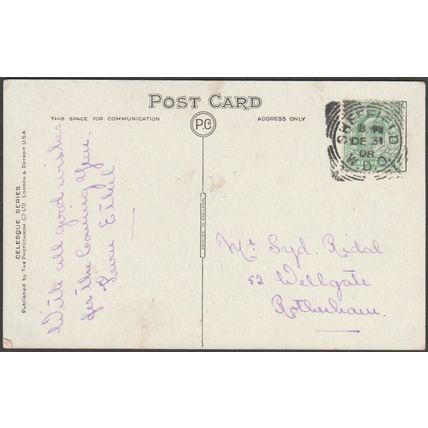 POST CARD
THIS SPACE FOR COMMUNICATION
P.C.
ADDRESS ONLY
SHEFFIELD
DE 31
08
CELESQUE SERIES
Published by THE PHOTOCHROM CO LTD LONDON & DETROIT U.S.A
With all good wishes
for the Coming Year.
from Ethel
PRINTED IN ENGLAND
Mr Syd. Ridal
52 Wellgate
Rotherham.